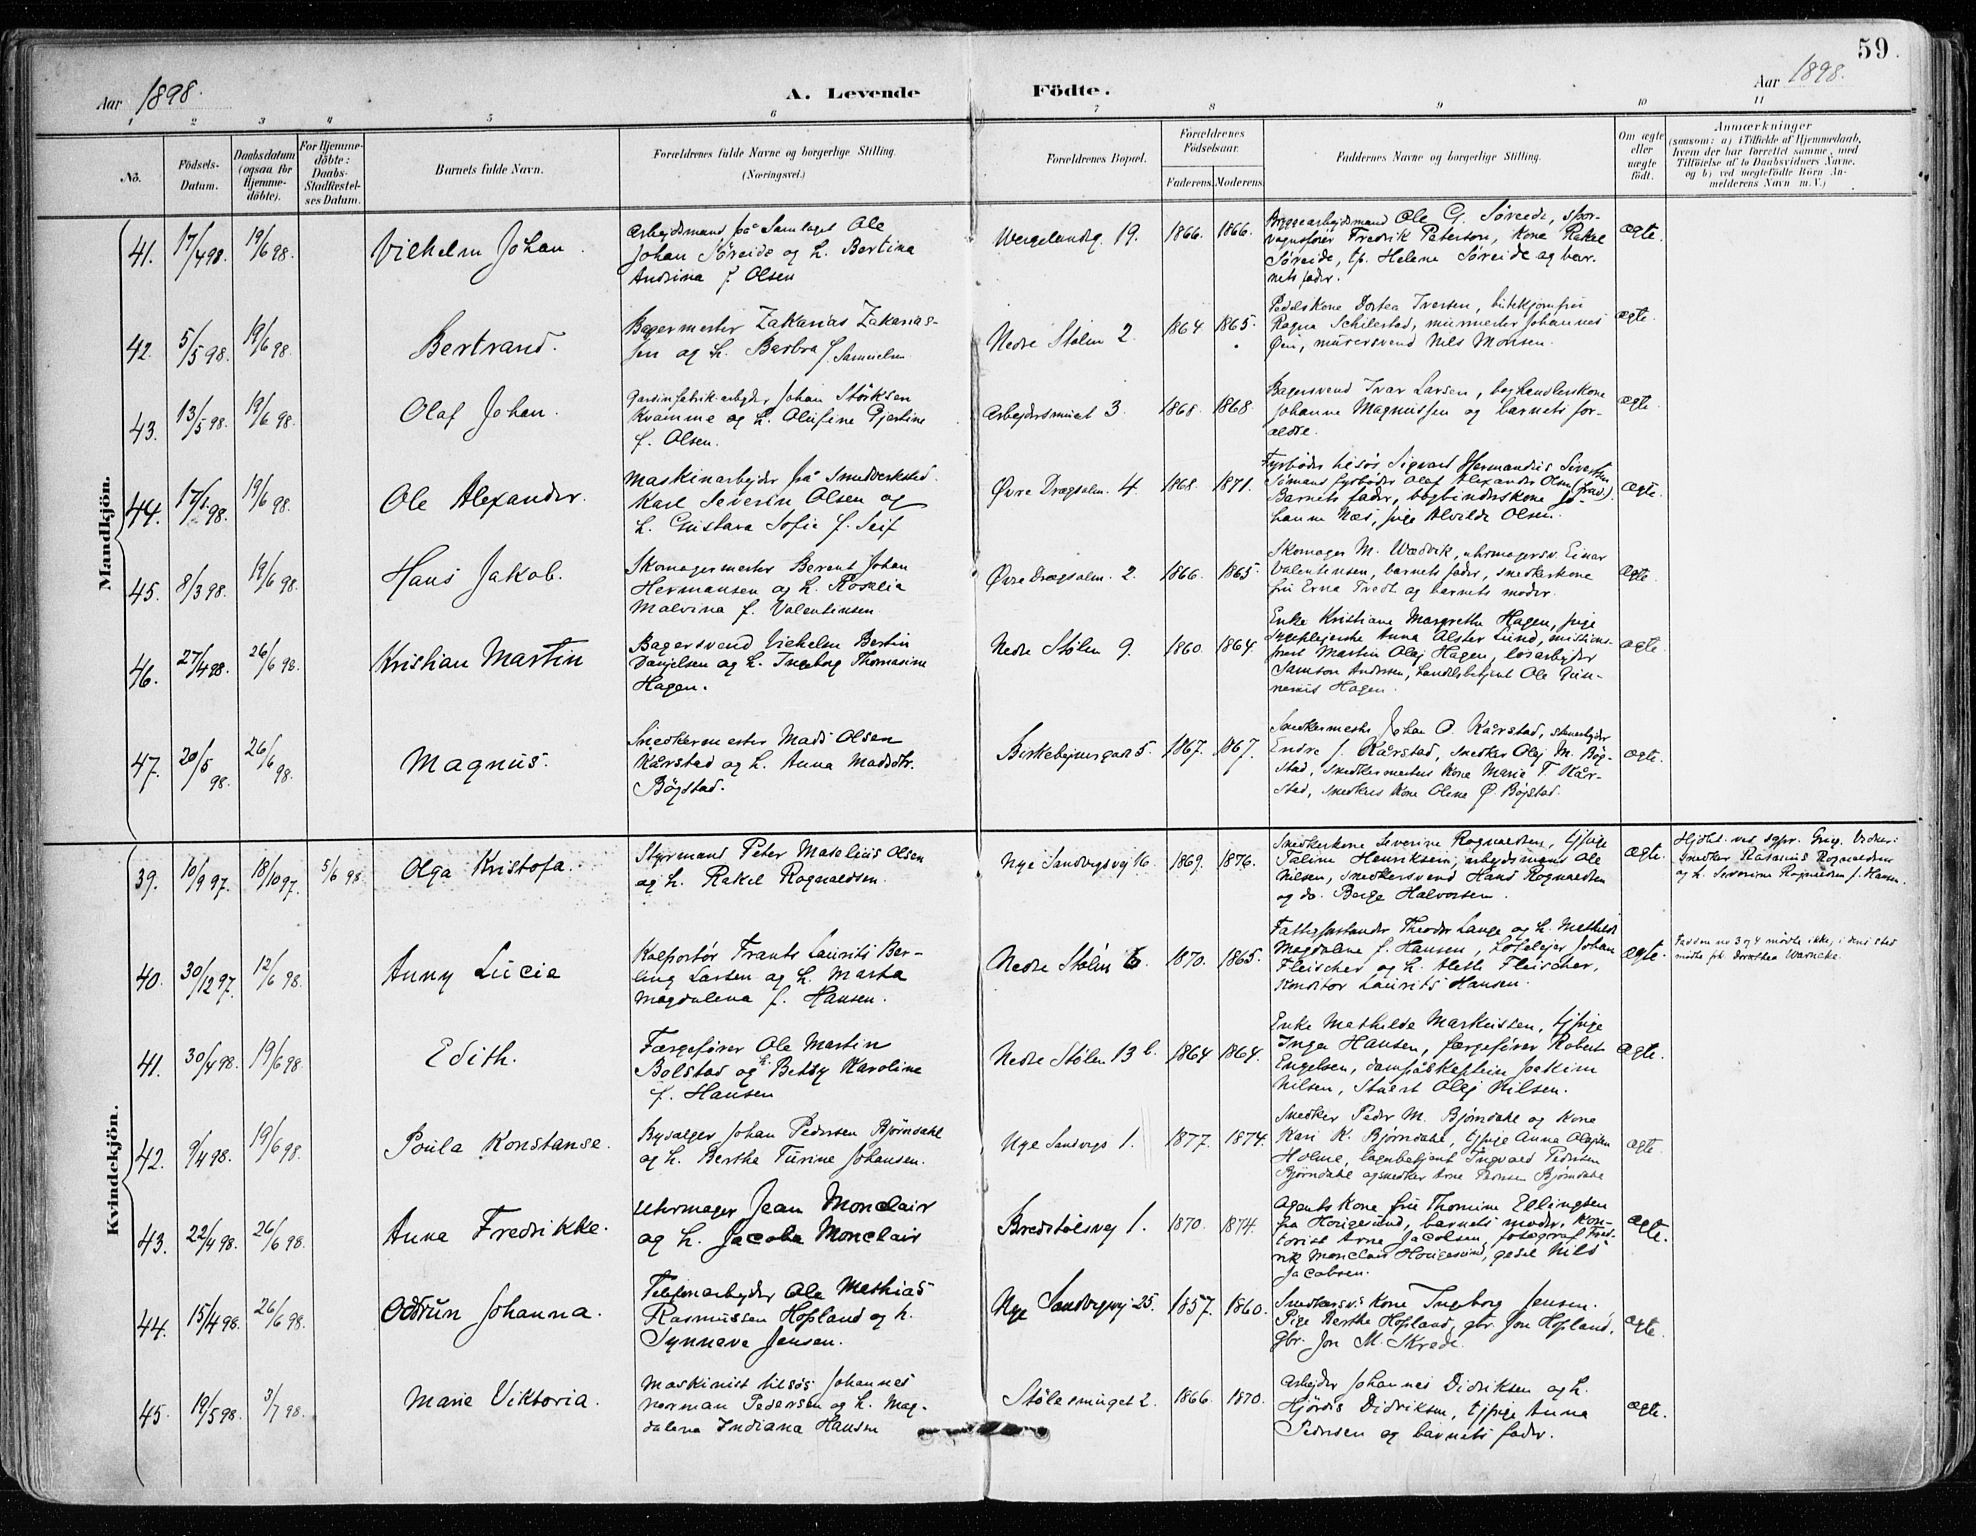 59.
Aar 1898.
A. Levende Födte.
Aar 1898.
1 2 3 4 5 6 7 8 9 10 11
No.
Födsels-Datum.
Daabsdatum (ogsaa for Hjemmedöbte).
For Hjemmedöbte: Daabs-Stadfæstelses Datum.
Barnets fulde Navn.
Forældrenes fulde Navne og borgerlige Stilling.
(Næringsvei.)
Forældrenes Bopæl.
Forældrenes Födselsaar.
Faderens. Moderens.
Faddernes Navne og borgerlige Stilling.
Om ægte eller uægte födt.
Anmærkninger
(saasom: a) i Tilfælde af Hjemmedaab,
hvem der har forrettet samme, med
Tilföielse af to Daabsvidners Navne,
og b) ved uægtefödte Börn Anmelderens Navn m. V.)
Mandkjön.
41. 17/4 98. 19/6 98. Vilhelm Johan.
Arbejdsmand på Samlaget Ole
Johan Søreide og h. Bertina
Andrina f. Olsen
Wergelandsg. 19. 1866. 1866.
Bryggearbejdsmand Ole G. Søreide, spor-
vognsfører Fredrik Peterson, kone Rakel
Søreide, tp. Helene Søreide og bar-
nets fader.
ægte.
42. 5/5 98. 19/6 98. Bertrand.
Bagermester Zakarias Zakarias-
sen og h. Barbra f. Samuelsen
Nedre Stølen 2. 1864. 1865.
Pedelskone Dortea Iversen, butikjomfru
Ragna Schilestad, murmester Johannes
Øen, murersvend Nils Monsen.
ægte.
43. 13/5 98. 19/6 98. Olaf Johan.
Gardinfabrik-arbejder Johan Störksen
Kvamme og h. Olufine Gjertine
f. Olsen.
Arbejdersmuet 3. 1868. 1868.
Bagersvend Ivar Larsen, boghandlerskone
Johanne Magnussen og barnets for-
ældre.
ægte.
44. 98. 19/6 98. Ole Alexander.
Maskinarbejder på Smedverksted
Karl Severin Olsen og
h. Gustava Sofie f. Seif
Øvre Dragsalm. 4. 1868. 1871.
Fyrbøder tilsøs Sigvart Hermandius Sivertsen
Sømans fyrbøder Olaf Alexander Olsen (frav.).
Barnets fader, bogbinderskone Jo-
hanne Næs, pige Alvilde Olsen.
ægte.
45. 8/3 98. 19/6 98. Hans Jakob.
Skomagermester Berent Johan
Hermansen og h. Rosalia
Malvina f. Valentinsen.
Øvre Dragsalm. 2. 1866. 1865.
Skomager M. Wædvik, uhrmagersv. Einar
Valentinsen, barnets fader, snedkerkone
fru Erna Tvedt og barnets moder.
ægte.
46. 27/4 98. 26/6 98. Kristian Martin
Bagersvend Vilhelm Bertin
Danjelsen og h. Ingeborg Thomasine
Hagen.
Nedre Stølen 9. 1860. 1864.
Enke Kristiane Margrethe Hagen, pige
Anna Alster Lund, missions-
prest Martin Olaj Hagen, løsarbejder
Samson Andersen, handelsbetjent Ole Gun-
nerius Hagen.
ægte.
47. 20/5 98. 26/6 98. Magnus.
Snedkermester Mads Olsen
Kårstad og h. Anna Madsdtr.
Bögstad.
Birkebejnergaden 5. 1867. 1867.
Snedkermester Johan O. Kårstad, stenarbejder
Endre J. Kårstad, snedker Olaj M. Bög-
stad, snedkermesters kone Marie T. Kår-
stad, snedkers kone Oline Ø. Bögstad.
ægte.
Kvindekjön.
39. 10/9 97. 18/10 97. 5/6 98. Olga Kristofa.
Styrmand Peter Maselius Olsen
og h. Rakel Rognaldsen.
Nye Sandvigsvej 16. 1869. 1876.
Snedkerkone Severine Rognaldsen, tj.pige
Taline Henriksen, arbejdsmand Ole
Nilsen, snedkersvend Hans Rognaldsen
og do. Berge Halvorsen.
ægte.
Hjdbt. ved sgpr. Grieg. Vidner:
Snedker Rasmus Rognaldsen
og h. Severine Rognaldsen f. Hansen.
40. 30/12 97. 12/6 98. Anny Lucie
Kolportør Frants Laurits Ber-
ling Larsen og h. Marta
Magdalena f. Hansen.
Nedre Stølen 6. 1870. 1865.
Fattigforstander Theodor Lange og h. Mathilde
Magdalene f. Hansen, Johan
Fleischer og h. Alette Fleischer,
Konditor Laurits Hansen.
ægte.
Faddern no 3 og 4 mødte ikke, i deres sted
mødte frk. Dorothea Warncke.
41. 30/4 98. 19/6 98. Edith.
Færgefører Ole Martin
Bolstad og h. Betsy Karoline
f. Hansen
Nedre Stølen 13 b. 1864. 1864.
Enke Mathilde Markusen, tj.pige
Inga Hansen, færgefører Robert
Engelsen, dampskaptein Joakim
Nilsen, Stuert Olaj Nilsen.
ægte.
42. 9/4 98. 19/6 98. Poula Konstanse.
Bysælger Johan Pedersen Björndahl
og h. Berthe Turine Johansen.
Nye Sandvigs 1. 1877. 1874.
Snedker Peder M. Björndahl og kone
Kari K. Björndahl, tj.pige Anna Olajsen
Holme, lagerbetjent Ingvald Pedersen
Björndahl og snedker Arne Pedersen Björndahl
ægte.
43. 22/4 98. 26/6 98. Anna Fredrikke.
Uhrmager Jean Monclair
og h. Jacoba Monclair
Bredstølsvej 1. 1870. 1874.
Agents kone fru Thomine Ellingsen
fra Haugesund, barnets moder, kon-
torist Arne Jacobsen, fotograf Fred-
rik Monclair Haugesund, Nils
Jacobsen.
ægte.
44. 15/4 98. 26/6 98. Oddrun Johanna.
Telefonarbejder Ole Mathias
Rasmussen Hopland og h.
Synneve Jensen.
Nye Sandvigsvej 25. 1857. 1860.
Snedkersv. kone Ingeborg Jensen.
Pige Berthe Hopland, gbr. Jon Hopland,
gbr. Jon M. Skrede.
ægte.
45. 19/5 98. 3/7 98. Marie Viktoria.
Maskinist tilsøs Johannes
Norman Pedersen og h. Mag-
dalena Indiana Hansen
Stølesmuget 2. 1866. 1870.
Arbejder Johannes Didriksen og h.
Hjördis Didriksen, tj.pige Anna
Pedersen og barnets fader.
ægte.